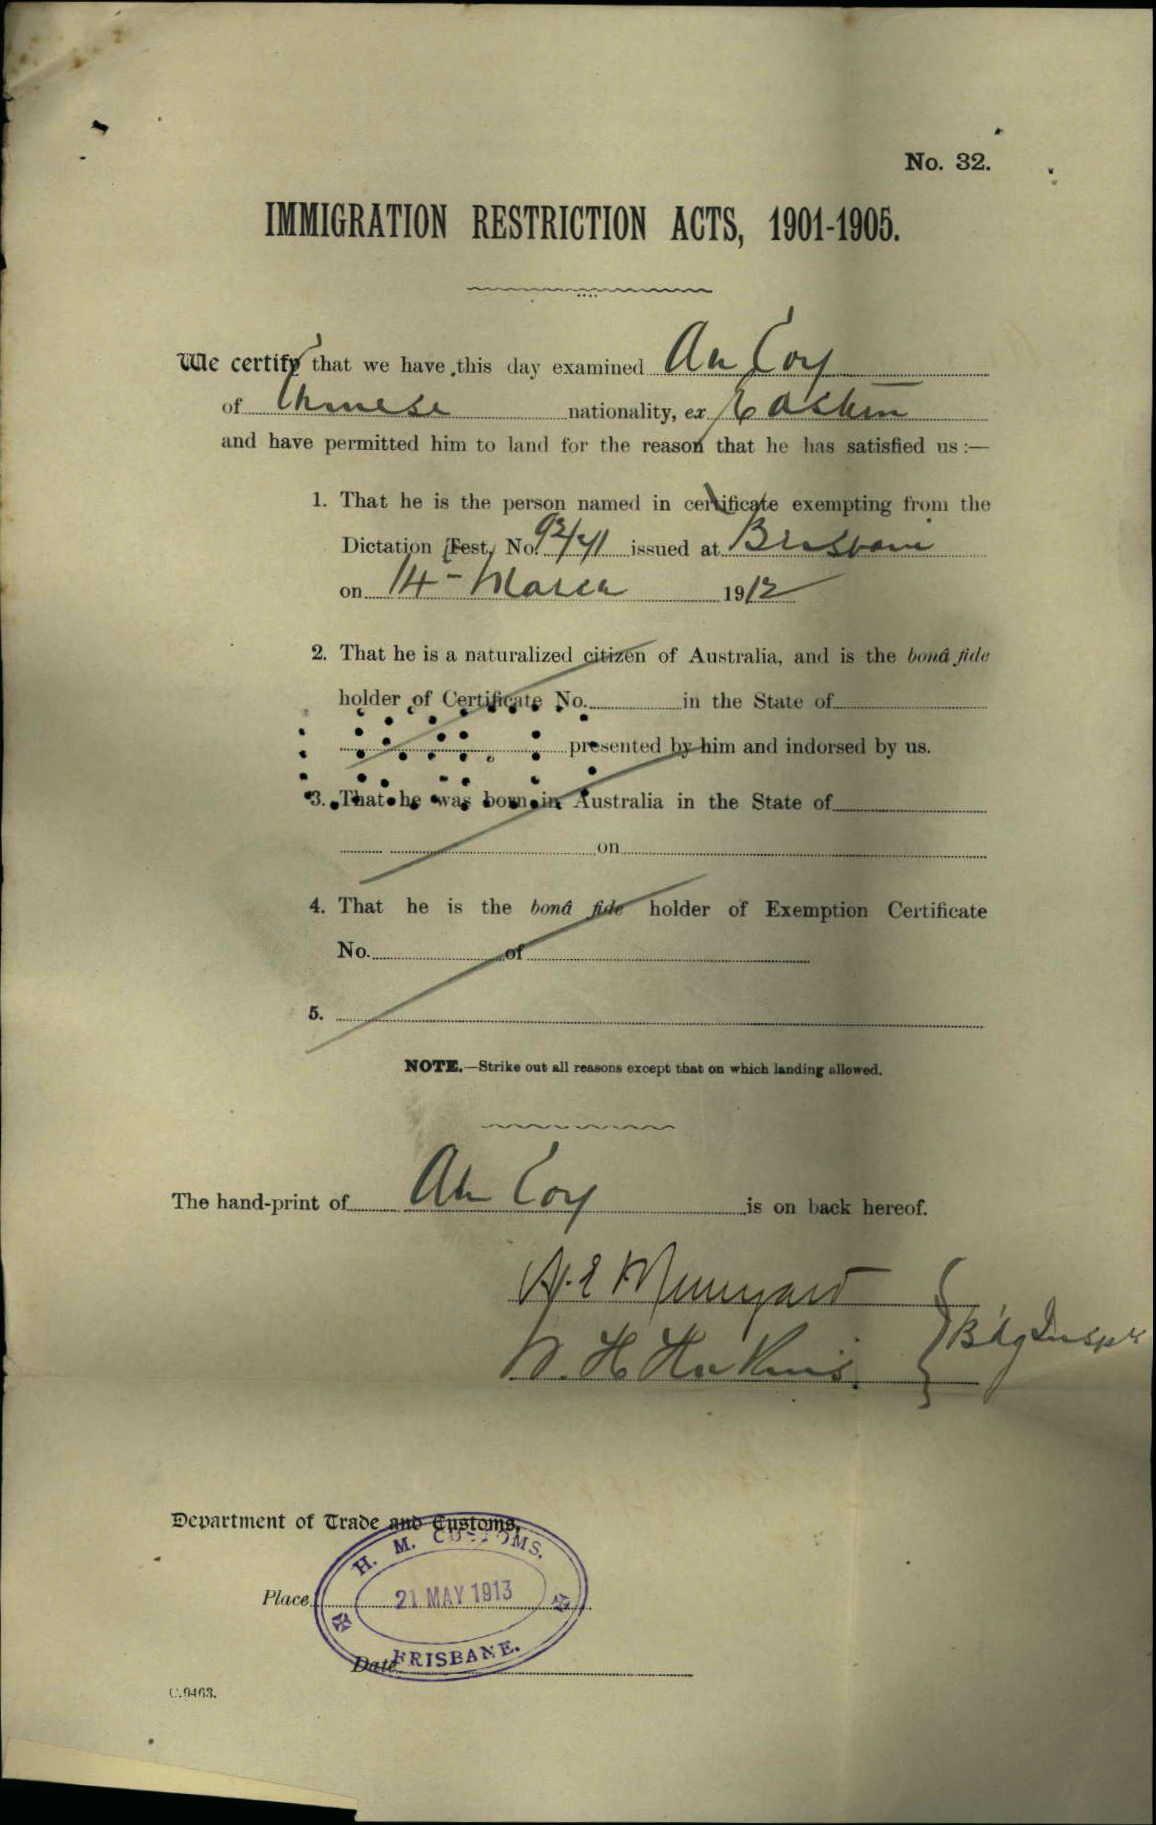 No. 32.
IMMIGRATION RESTRICTION ACTS, 1901-1905.
We certify that we have this day examined Ah Coy
of Chinese nationality, ex Eastern
and have permitted him to land for the reason that he has satisfied us :—
1. That he is the person named in certificate exempting from the
Dictation Test, No. issued at Brisbane
on 14 - March 1912
2. That he is a naturalized citizen of Australia, and is the bonâ fide
holder of Certificate No. in the State of
presented by him and indorsed by us.
3. That he was born in Australia in the State of
on
4. That he is the bonâ fide holder of Exemption Certificate
No. of
5.
NOTE.—Strike out all reasons except that on which landing allowed.
The hand-print of Ah Coy is on back hereof.
W. H. Hawkins
Department of Trade and Customs,
H. M. CUSTOMS.
Place
21 MAY 1913
BRISBANE.
Date
C.9463.